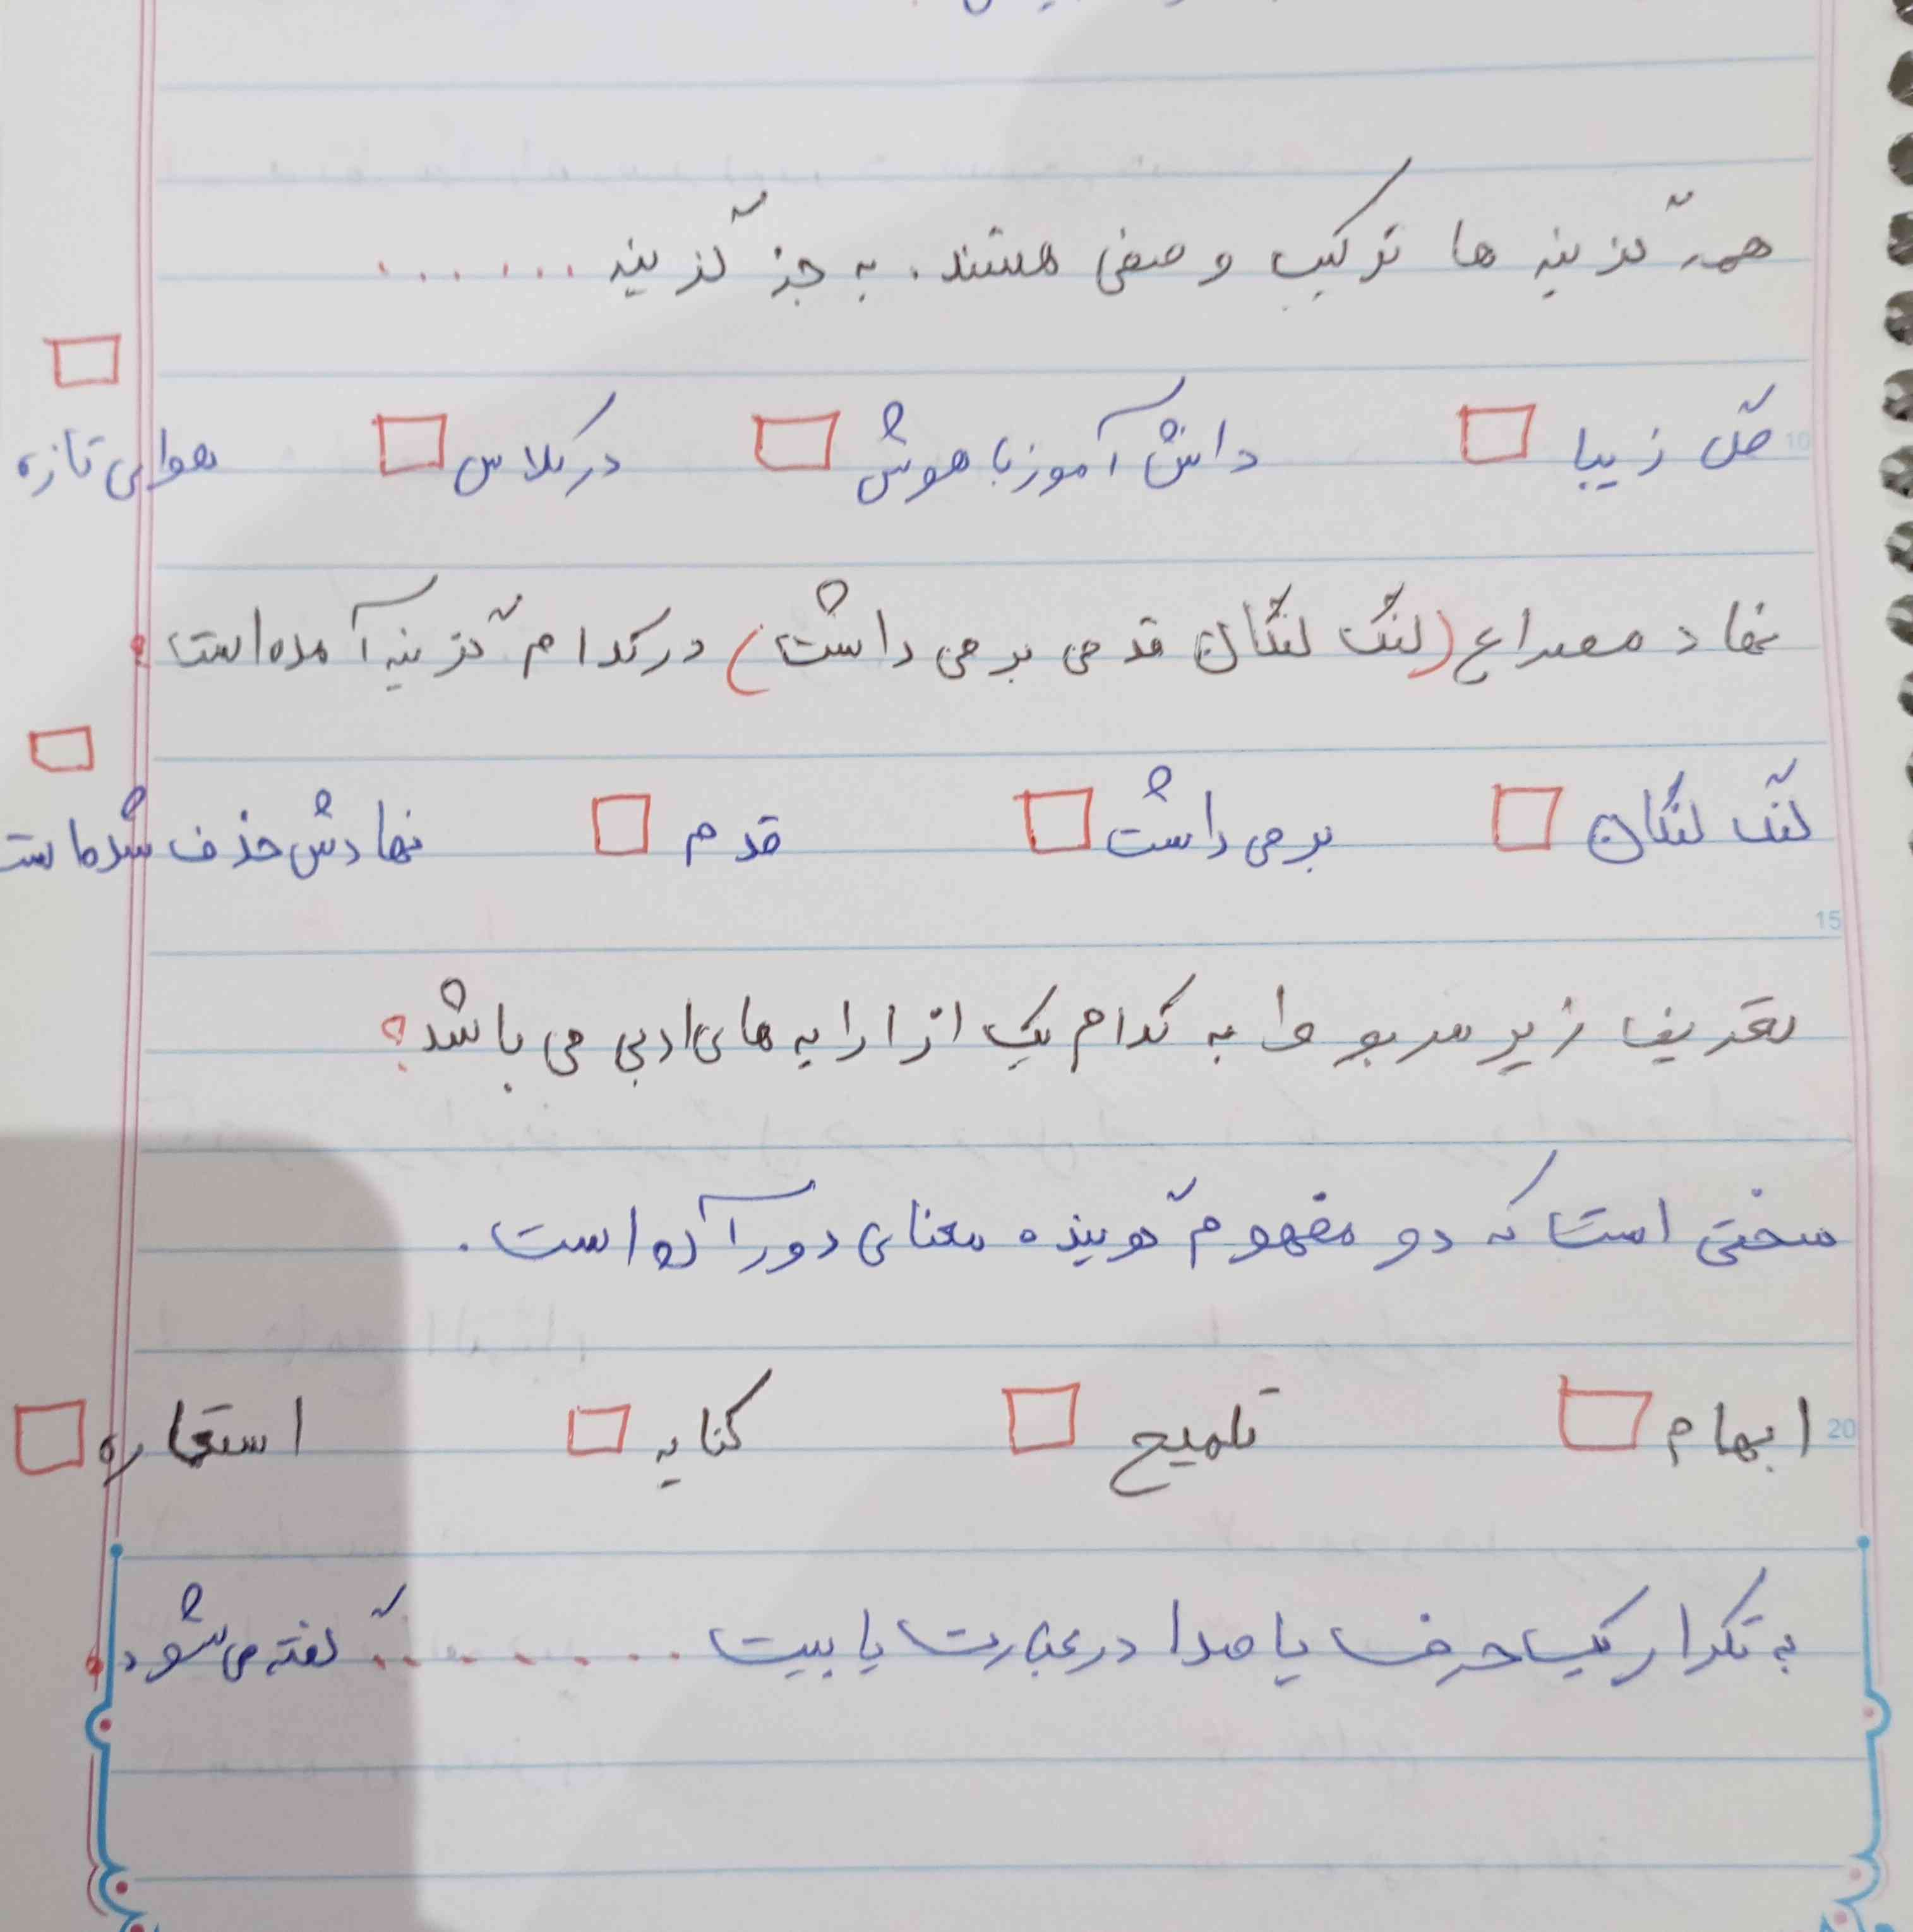 همه گزینه ها ترکیب وصفی هستند. به جز گزینه ......
گل زیبا دانش آموز با هوش در کلاس هوای تازه
نهاد مصراع (لنگ لنگان قدمی برمی داشت) در کدام گزینه آمده است؟
لنگ لنگان برمی داشت قدم نهادش حذف شده است
تعریف زیر مربوط به کدام یک از ارایه های ادبی می باشد؟
سخنی است که دو مفهوم گوینده معنای دور آن است.
ابهام تلمیح کنایه استعاره
به تکرار یک حرف یا صدا در عبارت یا بیت ........ گفته می شود
10
15
20